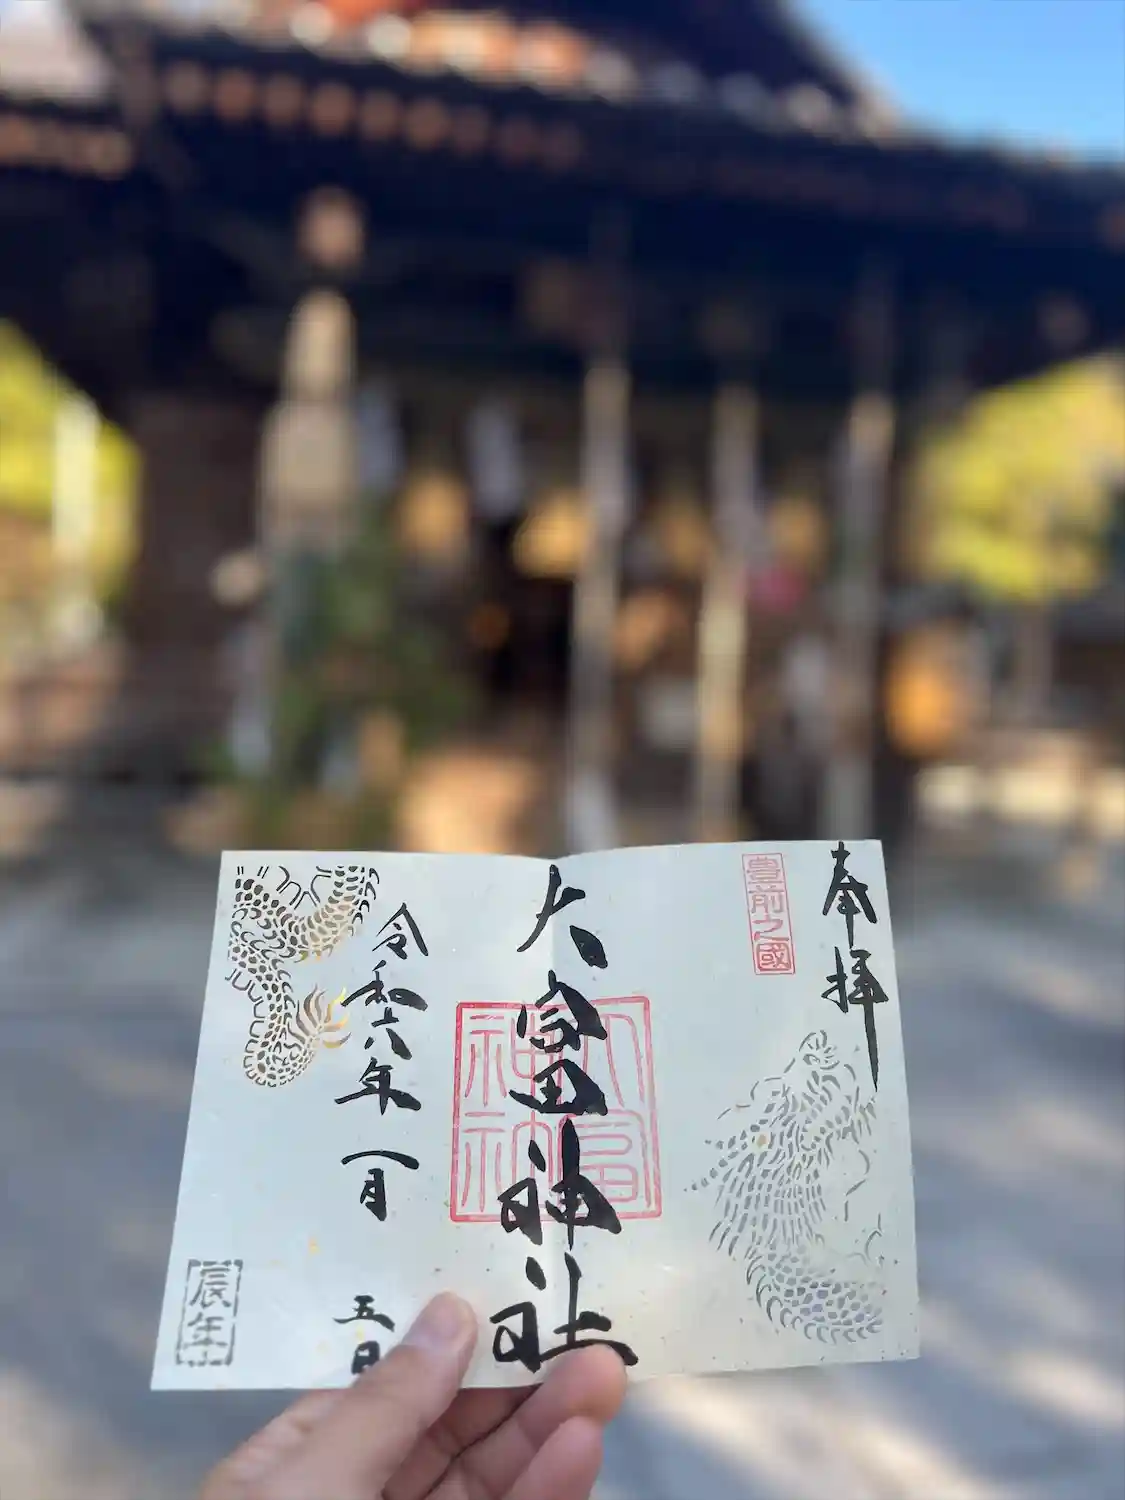 奉拝
豊前之國
大富神社
大富神社
令和六年一月
五日
辰年